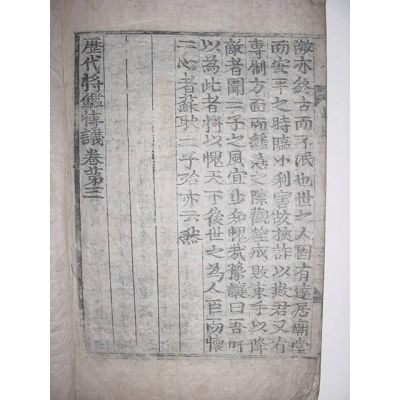 敵亦終古而不泯也世之人固有達居廟堂
而安平之時臨小利害故挾詐以欺君又有
專制方面而緩急之際觀望成敗束手以降
敵者聞二子之風宜少知愧哉豫讓曰吾所
以為此者將以愧天下後世之為人臣而懷
二心者蘇耿二子殆亦云然
歷代將鑑博議卷第三